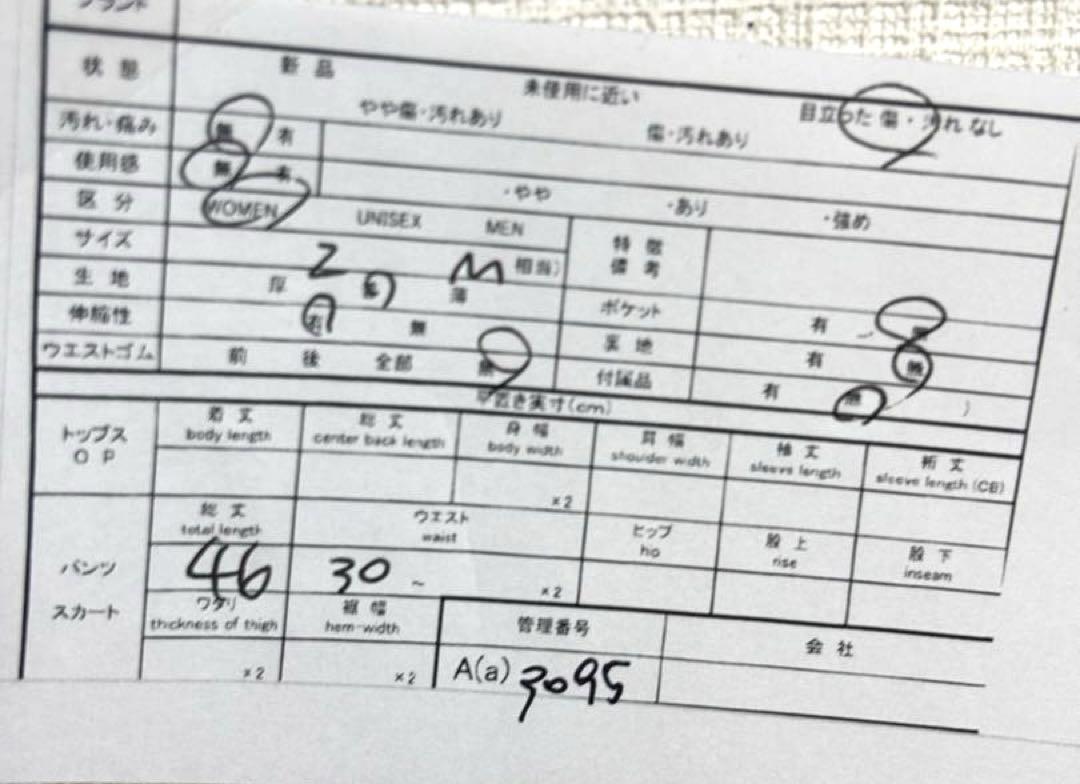 ブランド
状態 新品 未使用に近い 目立った傷・汚れなし
やや傷・汚れあり 傷・汚れあり
汚れ・痛み 無 有
使用感 無 有 ・やや ・あり ・強め
区分 WOMEN UNISEX MEN
サイズ 2 M 相当)
特徴
備考
生地 厚 薄
ポケット 有 無
伸縮性 有 無
裏地 有 無
ウエストゴム 前 後 全部 無
付属品 有 無 )
平置き実寸(cm)
トップス
OP
着丈 総丈 身幅 肩幅 袖丈 裄丈
body length center back length body width shoulder width sleeve length sleeve length (CB)
×2
パンツ
スカート
総丈 ウエスト ヒップ 股上 股下
total length waist hip rise inseam
46 30 ~ ×2
ワタリ 裾幅 管理番号 会社
thickness of thigh hem-width
×2 ×2 A(a) 3095